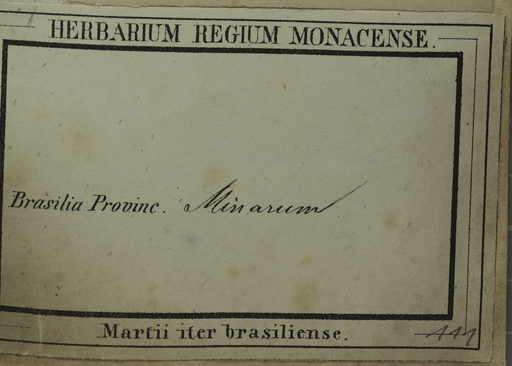 HERBARIUM REGIUM MONACENSE.
Brasilia Provinc. Minarum
Martii iter brasiliense.